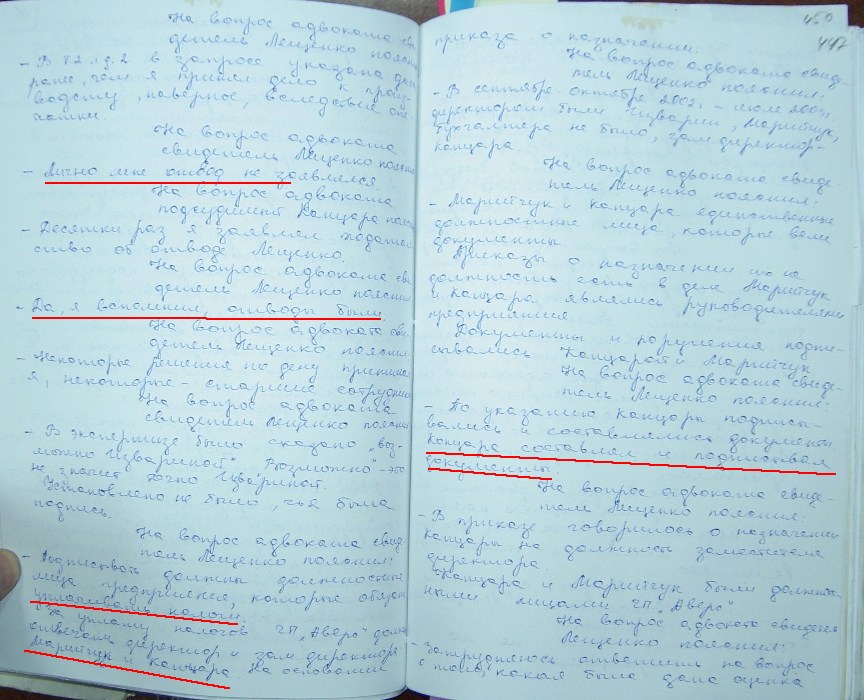 На вопрос адвоката сви-
детель Лещенко пояснил
- В т2 л.д.2 в запросе указана
раньше, чем я принял дело к произ-
водству, наверное, вследствие опе-
чатки.
На вопрос адвоката
свидетель Лещенко пояснил
- Лично мне отвод не заявлялся.
На вопрос адвоката
подсудимый Канцара
- Десятки раз я заявлял
ство об отводе Лещенко.
На вопрос адвоката сви
детель Лещенко пояснил
- Да, я вспомнил, отводы были.
На вопрос адвоката сви
детель Лещенко пояснил
- Некоторые решения по делу принимал
я, некоторые - старшие сотрудники
На вопрос адвоката
свидетель Лещенко пояснил
- В экспертизе было сказано „воз-
можно Изварикой". Возможно - это
не значит точно Изварикой.
Установлено не было, чья была
подпись.
На вопрос адвоката свид
тель Лещенко пояснил:
- Подписывать должны должностные
лица предприятия, которые обязаны
уплачивать налоги.
За уплату налогов ЧП „Аверс" должны
отвечать директор и зам. директора:
Марийчук и Канцара. На основании
450
447
приказа о назначении.
На вопрос адвоката свиде-
тель Лещенко пояснил:
- В сентябре октябре 2002, - июле 2003,
директором были Изварин, Марийчук,
бухгалтера не было, зам директор-
Канцара.
На вопрос адвоката свиде-
тель Лещенко пояснил:
- Марийчук и Канцара единственные
должностные лица, которые вели
документы.
Приказы о назначении их на
должность есть в деле Марийчук
и Канцара являлись руководителями
предприятия.
Документы и поручения подпи-
сывались Канцарой и Марийчук
На вопрос адвоката свиде-
тель Лещенко пояснил:
- По указанию Канцары подписы-
вались и составлялись документы
Канцара составлял и подписывал
документы.
На вопрос адвоката свиде-
тель Лещенко пояснил:
- В приказе говорилось о назначении
Канцары на должность заместителя
директора.
Канцара и Марийчук были должност-
ными лицами ЧП „Аверс"
На вопрос адвоката свидетель
Лещенко пояснил:
- Затрудняюсь ответить на вопрос
о том, какая была дана оценка